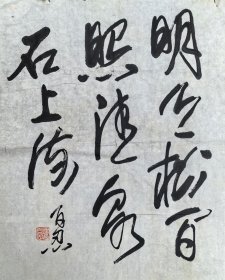 明月松间
照清泉
石上流